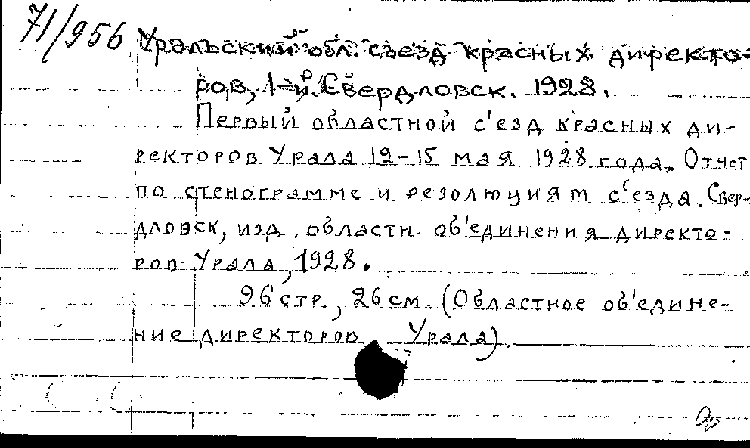 71/956
Уральский обл. съезд красных директо-
ров, 1-й. Свердловск. 1928.
Первый областной с'езд красных ди-
ректоров Урала 12-15 мая 1928 года. Отчет
по стенограмме и резолюциям с'езда. Свер-
дловск, изд. области. об'единения директо-
ров Урала, 1928.
96 стр., 26 см. (Областное об'едине-
ние директоров Урала).